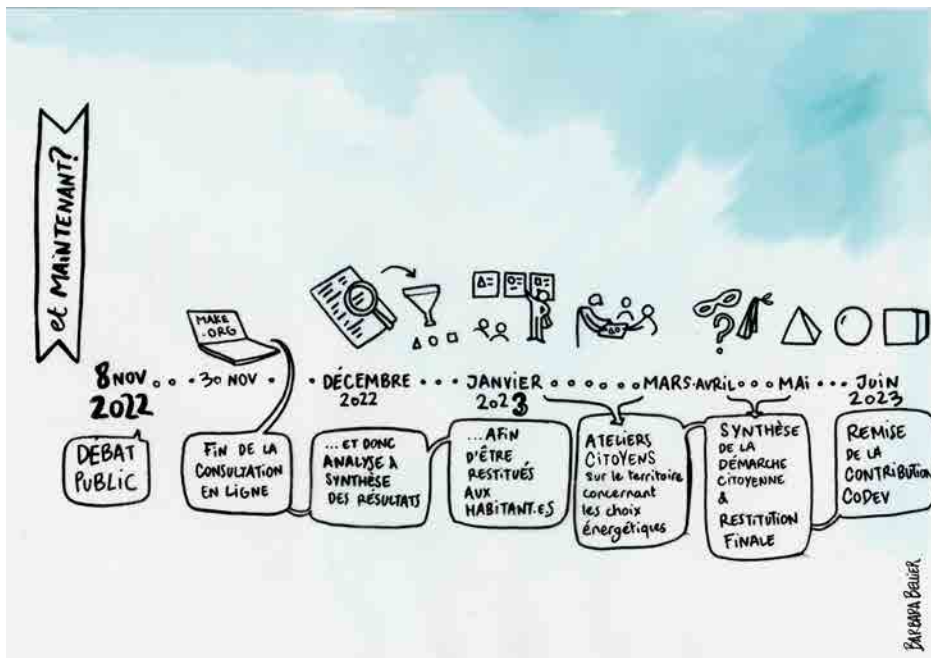 et MAINTENANT?
MAKE
.ORG
8 NOV
2022
30 NOV
DÉCEMBRE
2022
JANVIER
2023
MARS-AVRIL
MAI
JUIN
2023
DÉBAT
PUBLIC
FIN DE LA
CONSULTATION
EN LIGNE
...ET DONC
ANALYSE &
SYNTHÈSE
DES RÉSULTATS
...AFIN
D'ÊTRE
RESTITUÉS
AUX
HABITANT.E.S
ATELIERS
CITOYENS
sur le territoire
concernant
les choix
énergétiques
SYNTHÈSE
DE LA
DÉMARCHE
CITOYENNE
&
RESTITUTION
FINALE
REMISE
DE LA
CONTRIBUTION
CODEV
BARBARA BELLIER